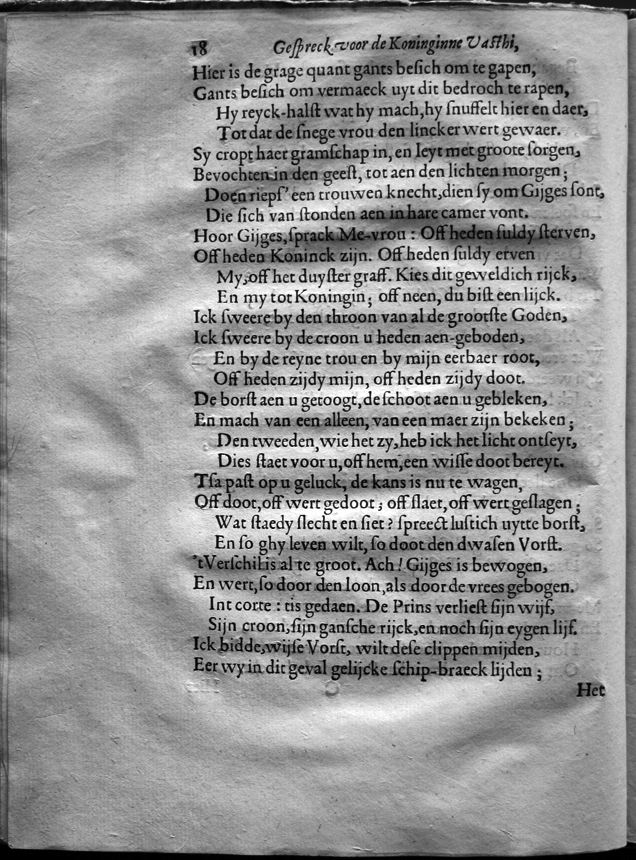 18 Geſpreck voor de Koninginne Vaſthi,
Hier is de grage quant gants beſich om te gapen,
Gants beſich om vermaeck uyt dit bedroch te rapen,
Hy reyck-halſt wat hy mach, hy ſnuffelt hier en daer,
Tot dat de ſnege vrou den lincker wert gewaer.
Sy cropt haer gramſchap in, en leyt met groote ſorgen,
Bevochten in den geeſt, tot aen den lichten morgen;
Doen riepſ' een trouwen knecht, dien ſy om Gijges ſont,
Die ſich van ſtonden aen in hare camer vont.
Hoor Gijges, ſprack Me-vrou: Off heden ſuldy ſterven,
Off heden Koninck zijn. Off heden ſuldy erven
My, off het duyſter graff. Kies dit geweldich rijck,
En my tot Koningin; off neen, du biſt een lijck.
Ick ſweere by den throon van al de grootſte Goden,
Ick ſweere by de croon u heden aen-geboden,
En by de reyne trou en by mijn eerbaer root,
Off heden zijdy mijn, off heden zijdy doot.
De borſt aen u getoogt, de ſchoot aen u gebleken,
En mach van een alleen, van een maer zijn bekeken;
Den tweeden, wie het zy, heb ick het licht ontſeyt,
Dies ſtaet voor u, off hem, een wiſſe doot bereyt.
Tſa paſt op u geluck, de kans is nu te wagen,
Off doot, off wert gedoot; off ſlaet, off wert geſlagen;
Wat ſtaedy ſlecht en ſiet? ſpreeckt luſtich uytte borſt,
En ſo ghy leven wilt, ſo doot den dwaſen Vorſt.
'tVerſchil is al te groot. Ach! Gijges is bewogen,
En wert, ſo door den loon, als door de vrees gebogen.
Int corte: tis gedaen. De Prins verlieſt ſijn wijf,
Sijn croon, ſijn ganſche rijck, en noch ſijn eygen lijf.
Ick bidde, wijſe Vorſt, wilt deſe clippen mijden,
Eer wy in dit geval gelijcke ſchip-braeck lijden;
Het